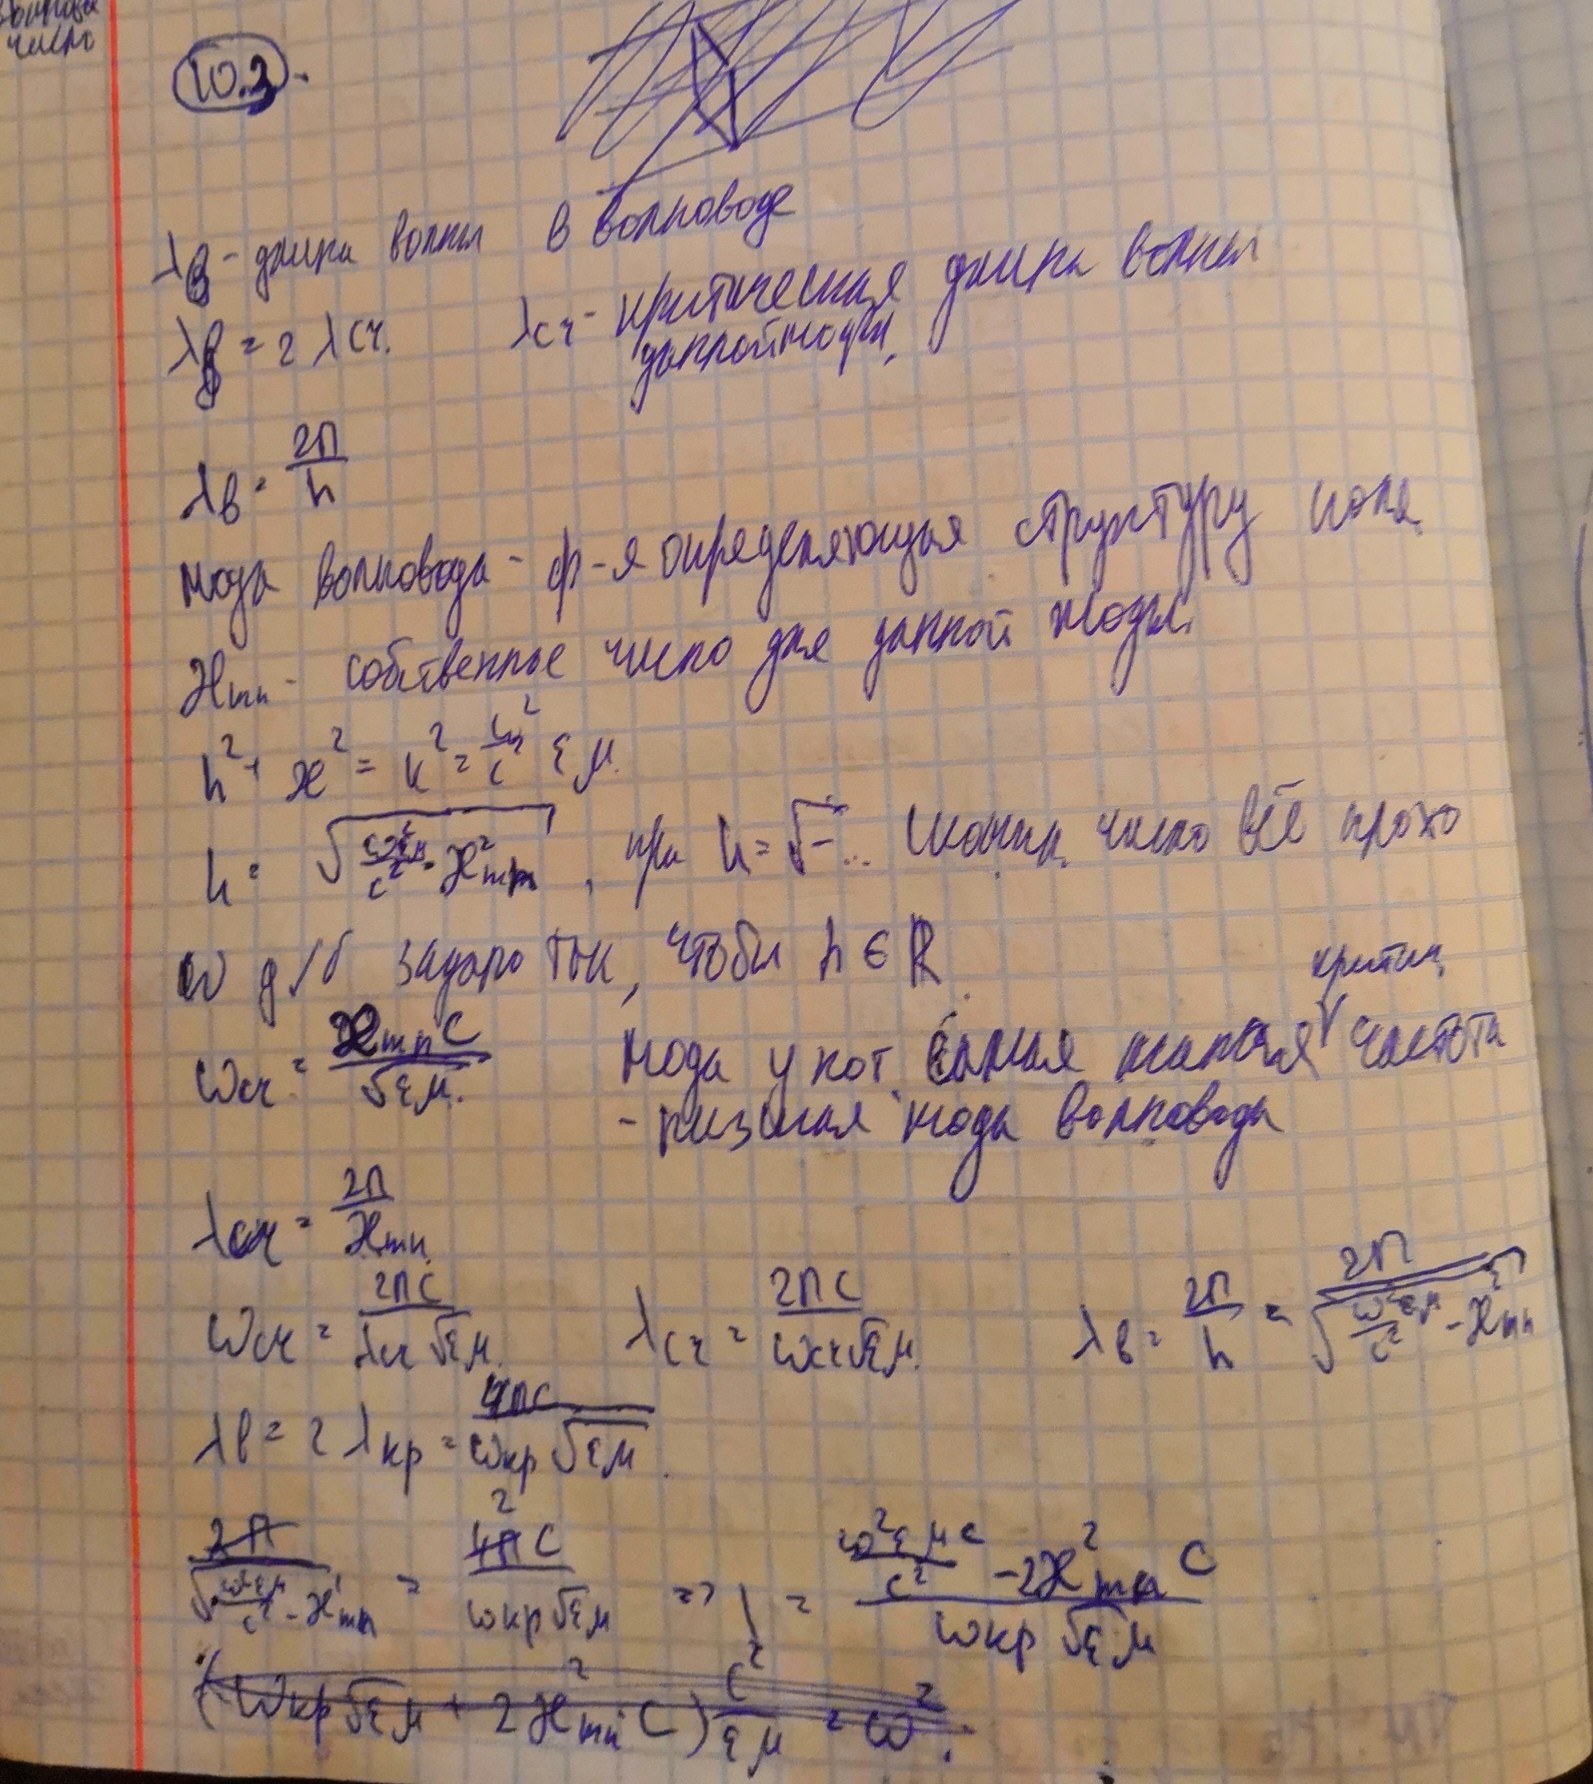 число
10.3.
λв - длина волны в волноводе
λв = 2 λсч. λсч - критическая длина волны
данной моды.
λв = 2П/h
мода волновода - ф-я определяющая структуру поля
ℋmn - собственное число для данной моды.
h² + æ² = k² = ω²/c² εμ.
h = √(ω²εμ/c² - ℋ²mn), при h = √-... число всё плохо
ω д/б задано так, чтобы h ∈ ℝ
критич.
ωсч = ℋmn C/√εμ. мода у кот. самая малая частота
- низшая мода волновода
λсч = 2П/ℋmn
ωсч = 2ПC/λсч√εμ. λсч = 2ПC/ωсч√εμ. λв = 2П/h = 2П/√(ω²εμ/c² - ℋ²mn)
λв = 2 λкр = 4ПC/ωкр√εμ.
2П/√(ω²εμ/c² - ℋ²mn) = 4ПC/ωкр√εμ => 1 = (ω²εμC/c² - 2ℋ²mn C)/ωкр√εμ
(ωкр√εμ + 2ℋ²mn C) c²/εμ = ω².